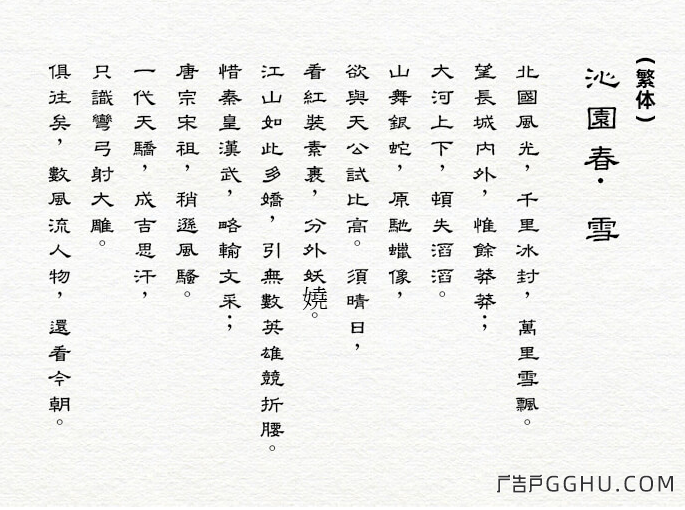 （繁体）
沁園春·雪
北國風光，千里冰封，萬里雪飄。
望長城内外，惟餘莽莽；
大河上下，頓失滔滔。
山舞銀蛇，原馳蠟像，
欲與天公試比高。須晴日，
看紅裝素裹，分外妖嬈。
江山如此多嬌，引無數英雄競折腰。
惜秦皇漢武，略輸文采；
唐宗宋祖，稍遜風騷。
一代天驕，成吉思汗，
只識彎弓射大雕。
俱往矣，數風流人物，還看今朝。
广告户GGHU.COM